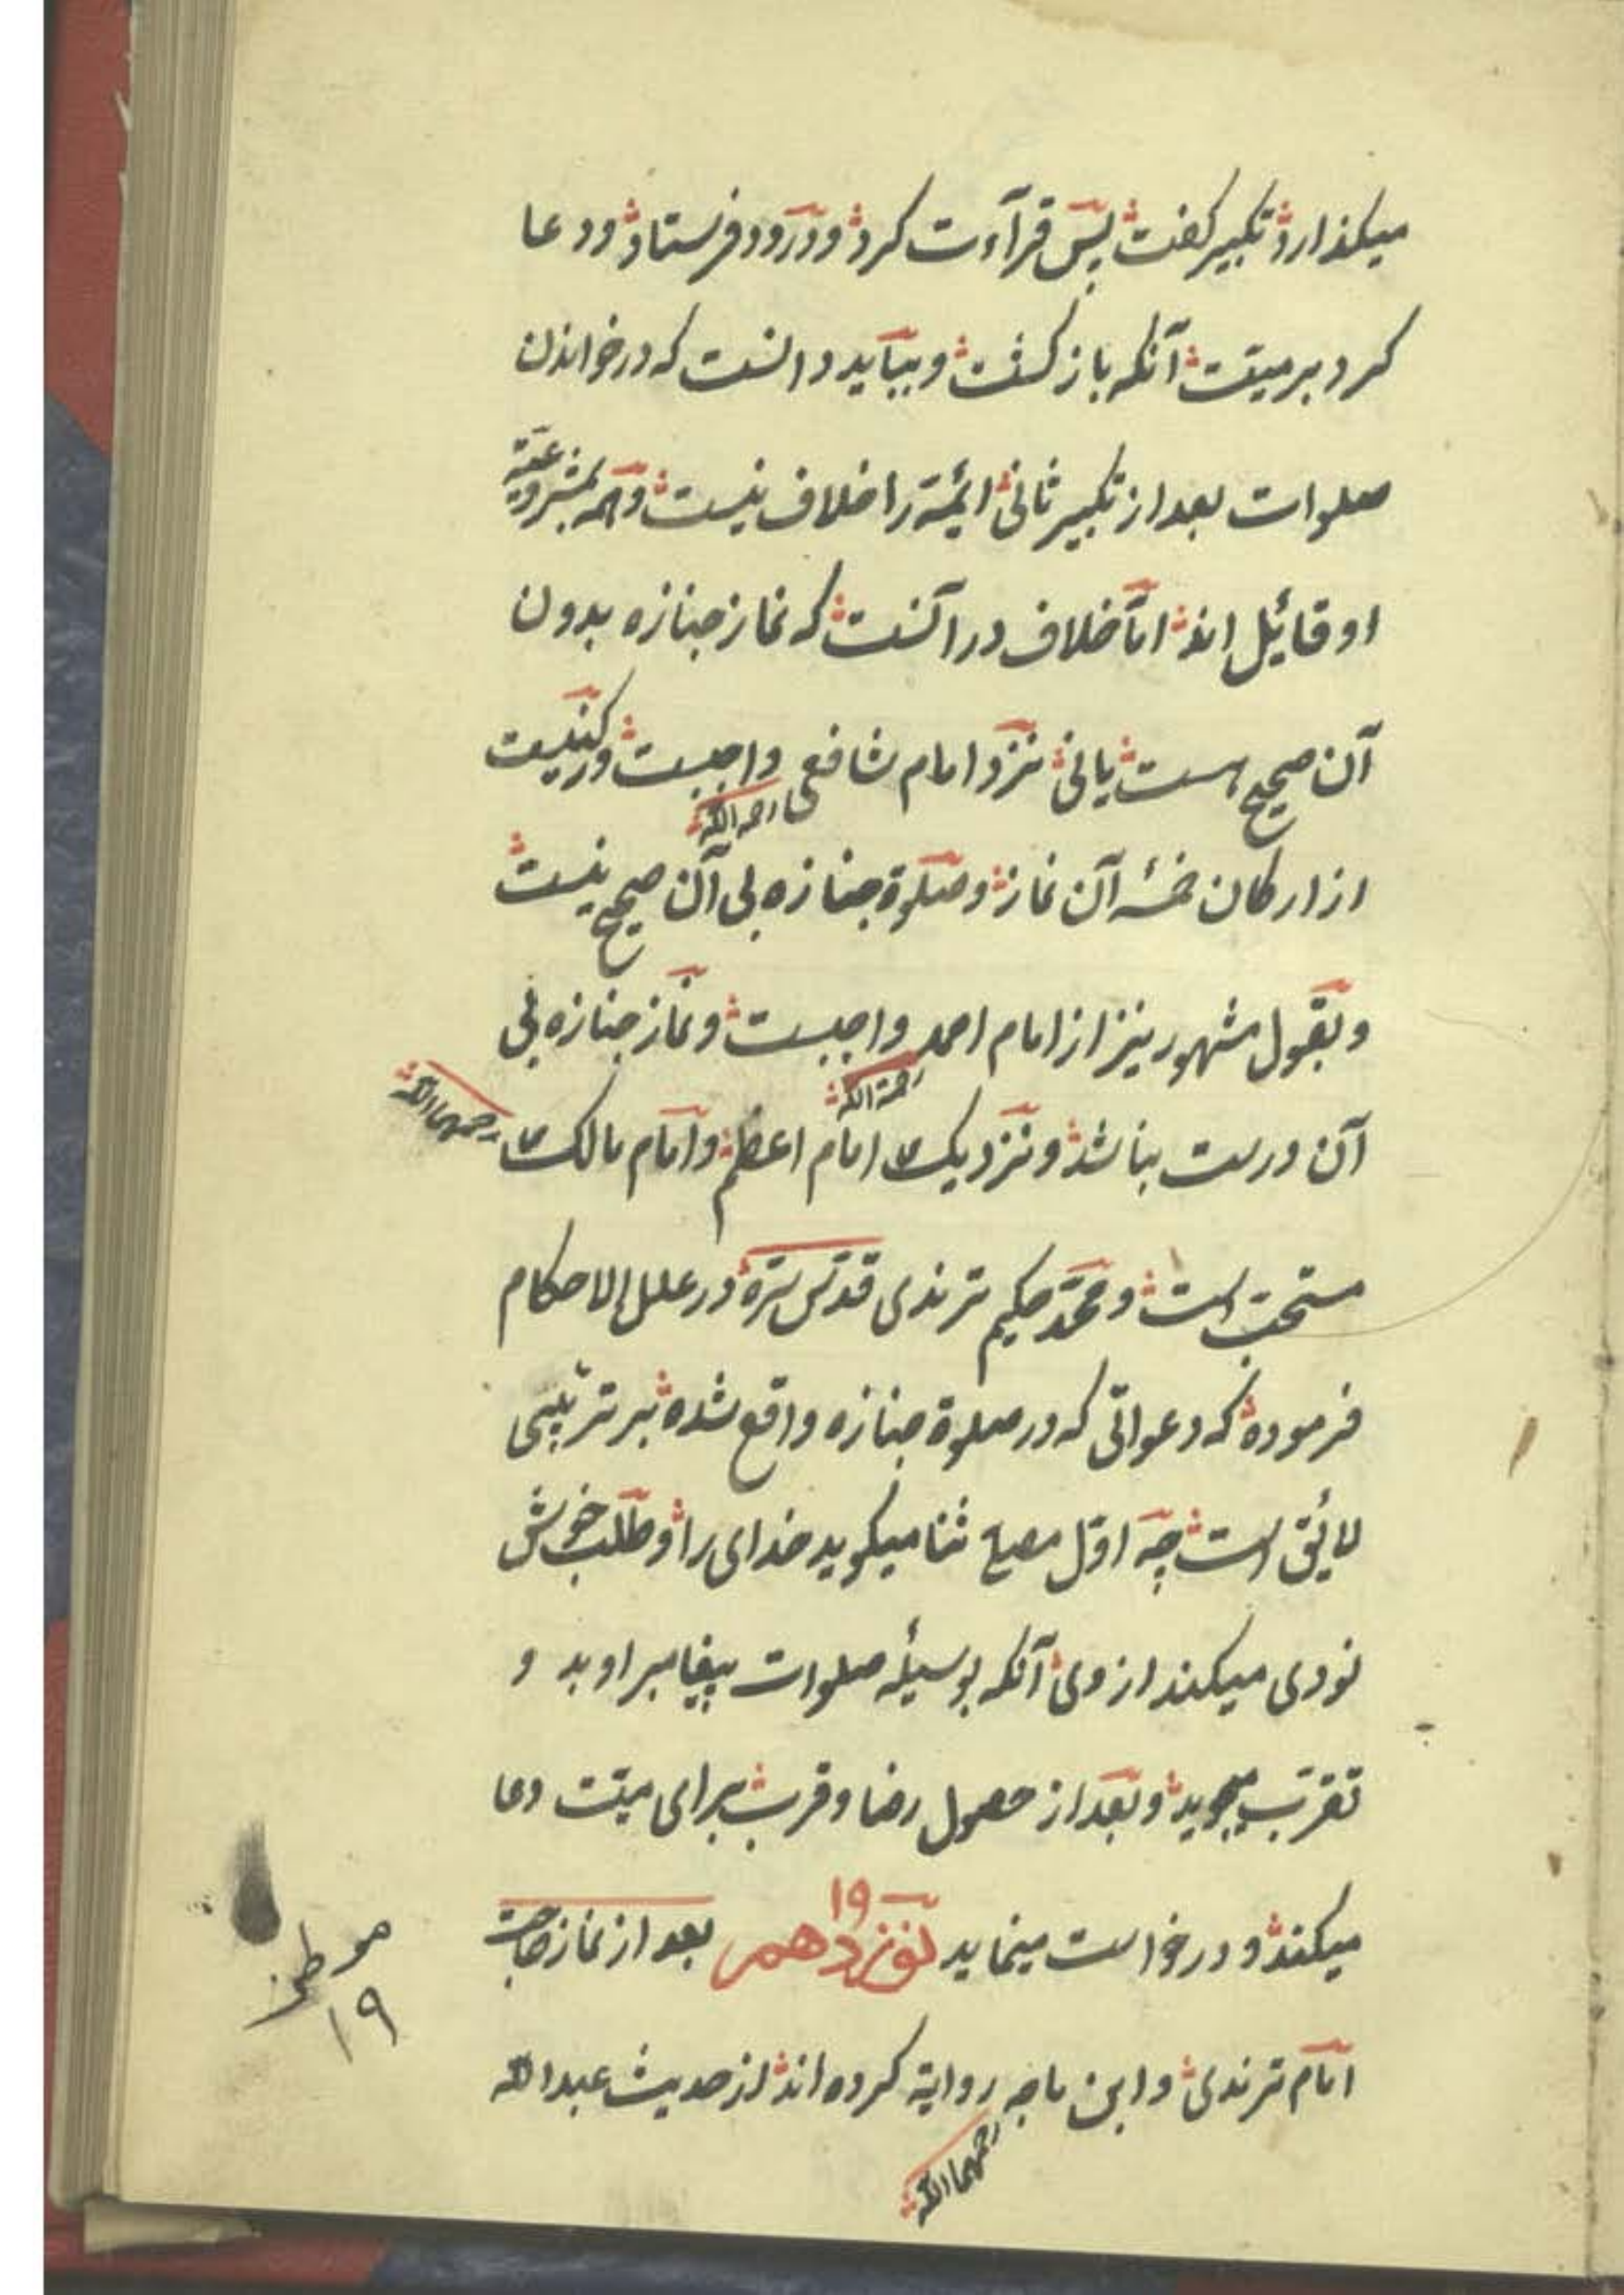 میکذارد تکبیر کفت پس قرآءت کرد و درود فرستاد و دعا
کرد بر میت آنکه باز کشت و بباید دانست که در خواندن
صلوات بعد از تکبیر ثانی ائمة را خلاف نیست و همه بمشروعیة
او قائیل اند اما خلاف در آنست که نماز جنازه بدون
آن صحیح هست یا نی نزد امام شافعی رحمه الله واجبست و رکنیست
از ارکان خمسه آن نماز و صلوة جنازه بی آن صحیح نیست
و بقول مشهور نیز از امام احمد رحمة الله واجبست و نماز جنازه بی
آن درست نباشد و نزدیک امام اعظم و امام مالک رحمهما الله
مستحب است و محمد حکیم ترمذی قدس سره در علل الاحکام
فرموده که دعواتی که در صلوة جنازه واقع شده بر ترتیبی
لائیق است چه اول مصلی ثنا میکوید خدای را و طلب خوش
نودی میکند از وی آنکه بوسیلۀ صلوات پیغامبر او بد و
تقرب میجوید و بعد از حصول رضا و قرب برای میت دعا
میکند و درخواست مینماید نوزدهم ۱۹ بعد از نماز حاجت
موطن ۱۹
امام ترمذی و ابن ماجه رحمهما الله روایة کرده اند از حدیث عبد الله